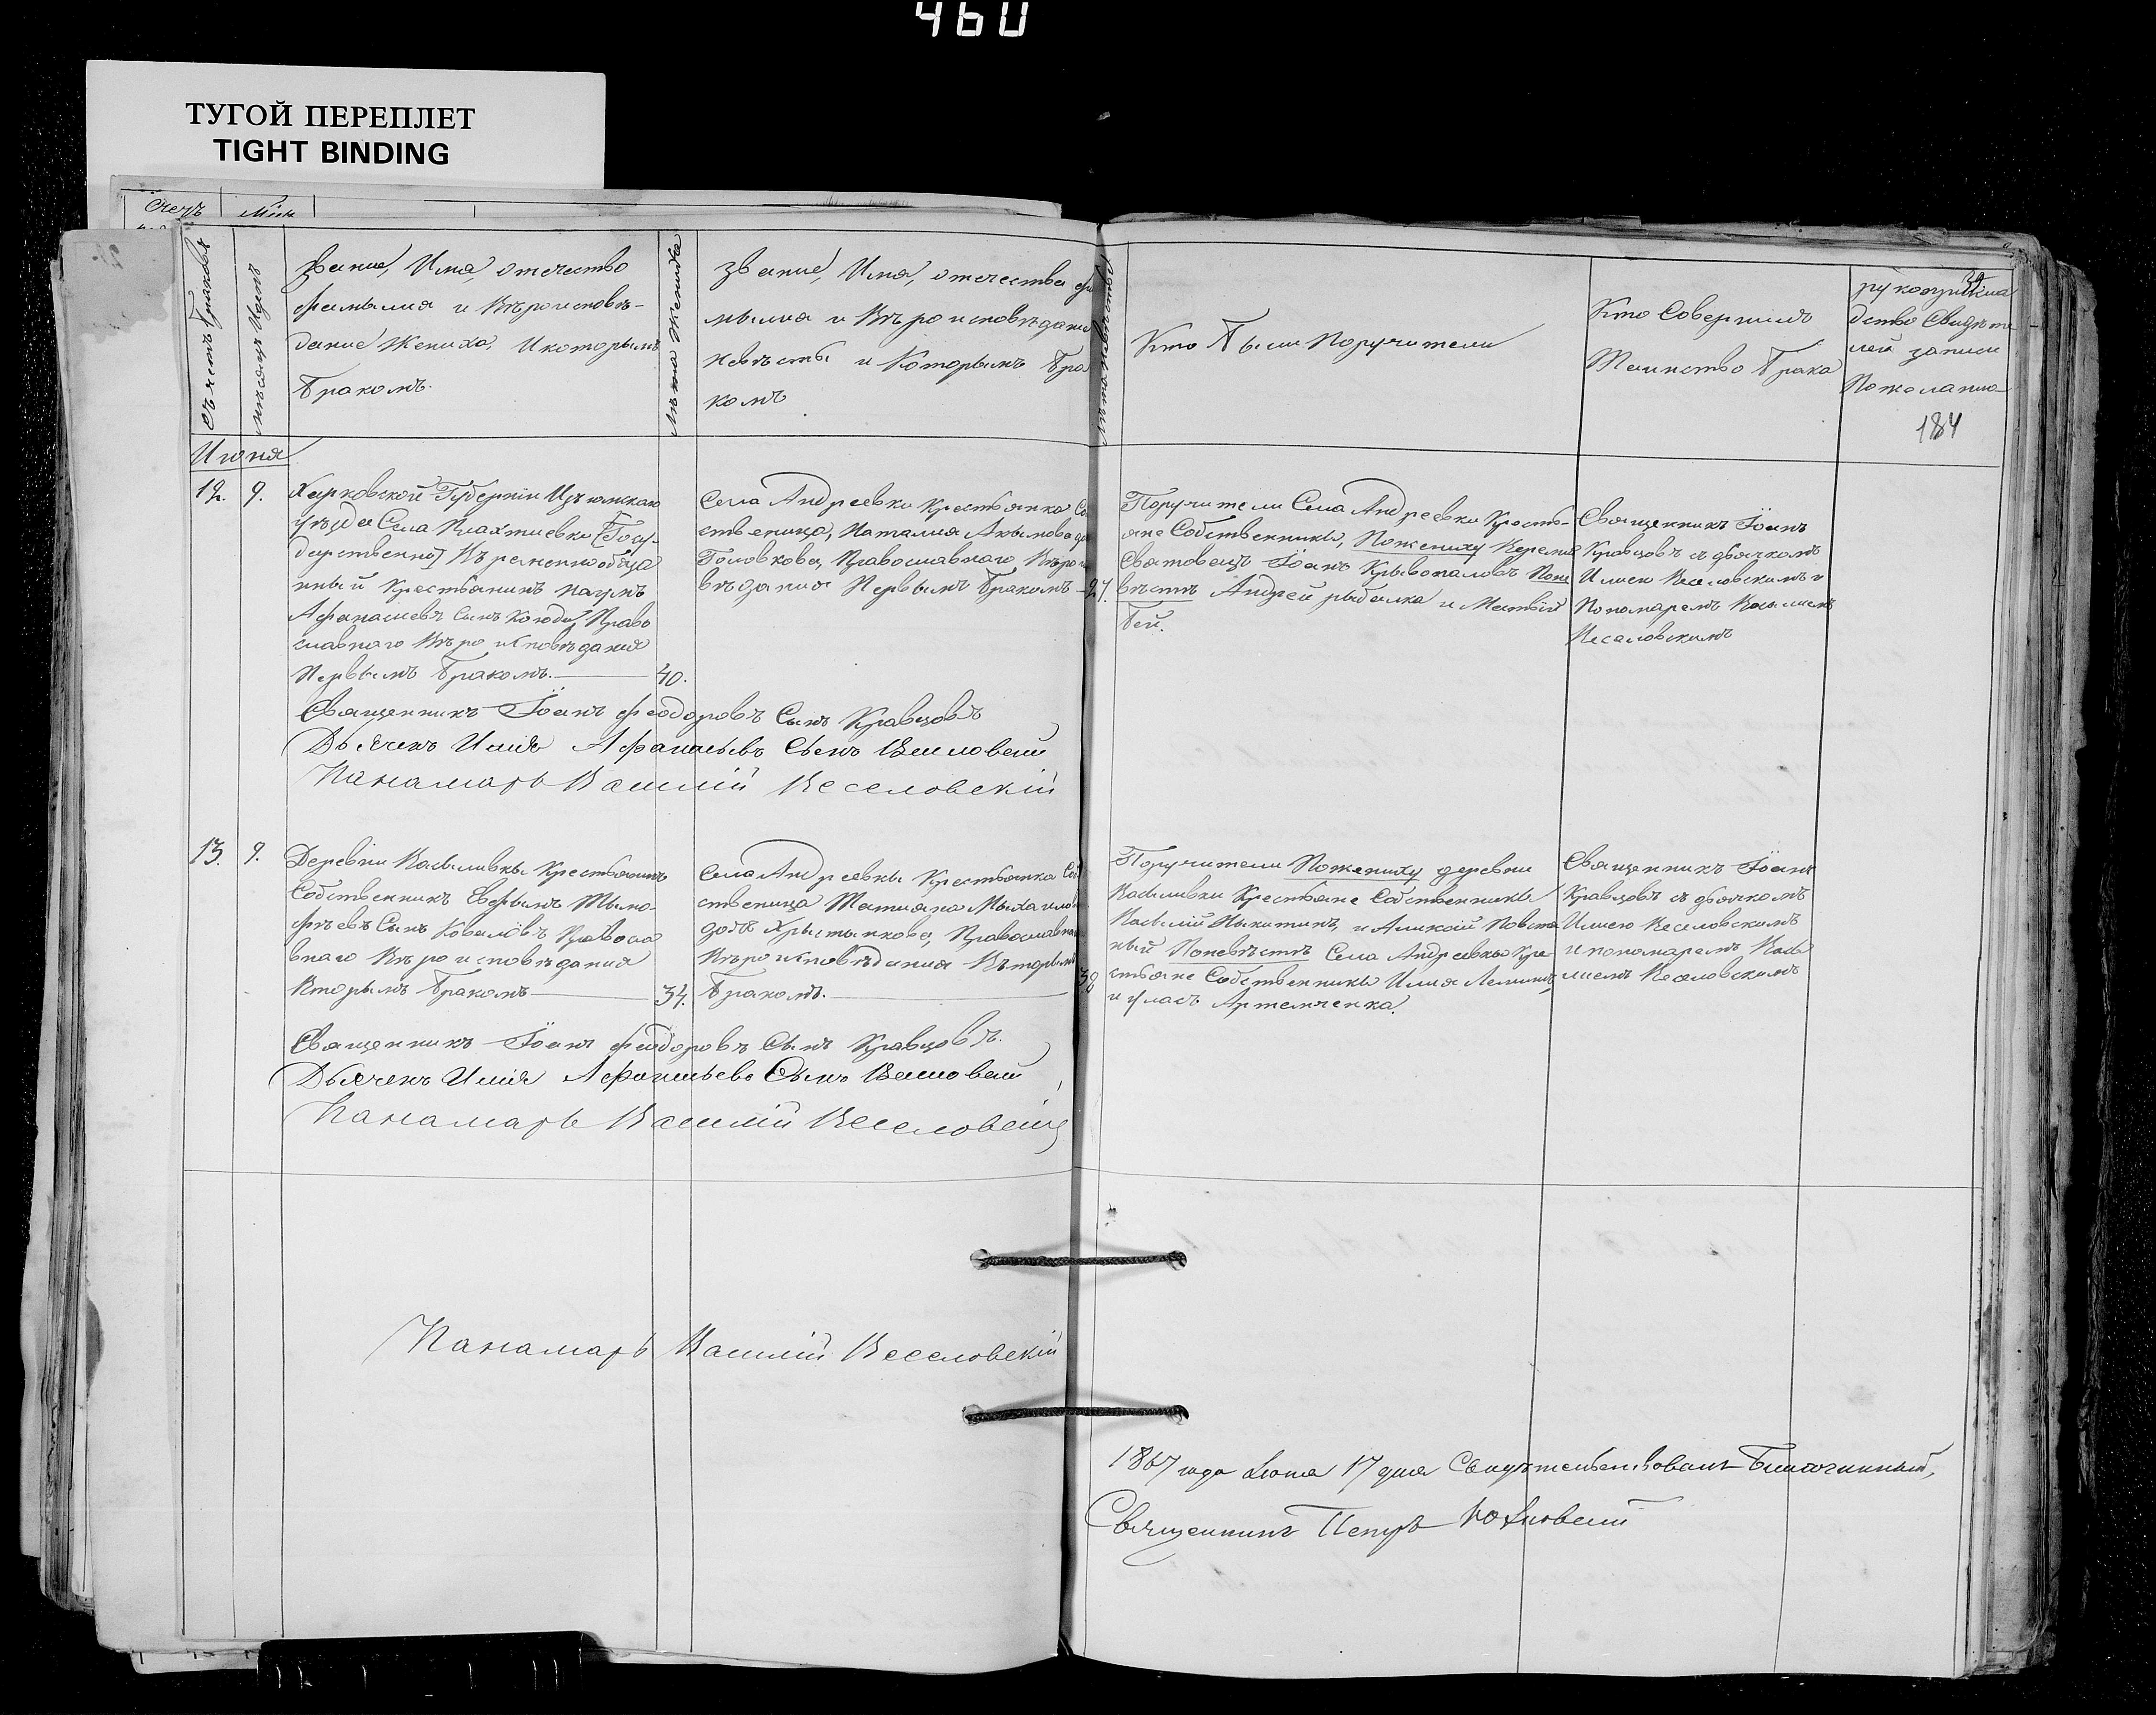 460
ТУГОЙ ПЕРЕПЛЕТ
TIGHT BINDING
Счетъ браковъ
мѣсяцъ И день
Звание, Имя, отечество
фамылия и Вѣроисповѣ-
дание Жениха, И которымъ
бракомъ.
Лѣта Жениха
Звание, Имя, отечества фа
мылия и Вѣроисповѣдание
невѣсты и Которымъ бра
комъ
Лѣта невѣсты
Кто были Поручители
Кто Совершилъ
Таинство брака
рукоприкла
дство Свидѣте
лей записи
Пожеланию
184
Июня
12. 9.
Харковской Губернiи Изъюмскаго
уѣзда Села Плахтиевки [Госу-
дарственной] Временнообяза
нный Крестьянинъ Наумъ
Афанасиевъ сынъ Коюда, Право
славнаго Вѣроисповѣдания
Первымъ бракомъ. 40.
Села Андреевки крестьянка Со
ственница, Наталия Акымова до
Головкова, Православнаго Вѣрои
вѣдания Первымъ бракомъ 27.
Поручители Села Андреевки Кресть-
яне Собственники, Пожениху
Святовецъ Iоанъ Крывопаловъ Поне
вѣстѣ Андрей рыбалка и Матвiй
бей.
Священникъ Iоанъ
Кравцовъ съ дьячкомъ
Илиею Веселовскимъ и
Пономаремъ Васылиемъ
Веселовскимъ
Священникъ Iоанъ Феодоровъ Сынъ Кравцовъ
Дьячекъ Илiя Афанасьевъ Сынъ Веселовскiй
Панамарь Василiй Веселовскiй
13. 9.
Деревни Васыливкы Крестьянинъ
Собственникъ Евфымъ Тымо-
фѣевъ Сынъ Ковалiовъ Правосла
внаго Вѣроисповѣдания
Вторымъ бракомъ 34.
Села Андреевкы Крестьянка Соб
ственница Татияна Мыхаилов
дочь Хрыстынкова, Православна
Вѣроисповѣдания Вторымъ
бракомъ.
Поручители Пожениху деревни
Васыливки Крестьяне Собственникы
Васылiй Ныкитинъ, и Аликсiй
Поневѣстѣ Села Андреевкы Кре
стьяне Собственникы Илия
и Уласъ Артемченка.
Священникъ Iоанъ
Кравцовъ съ дьячкомъ
Илиею Веселовскимъ
и пономаремъ Васы
лиемъ Веселовскимъ
Священникъ Iоанъ Феодоровъ Сынъ Кравцовъ.
Дьячекъ Илiя Афанасьевъ Сынъ Веселовскiй
Панамарь Василiй Веселовскiй
Панамарь Василiй Веселовскiй
1867 года Iюня 17 дня Свидѣтельствовалъ Благочинный,
Священникъ Петръ